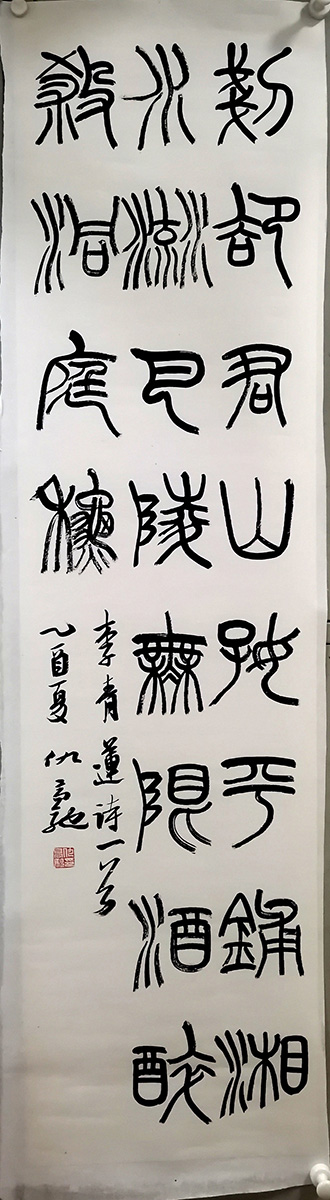 剗卻君山好平鋪湘
水流巴陵無限酒醉
殺洞庭龝
李青蓮詩一首
乙酉夏 仇高馳